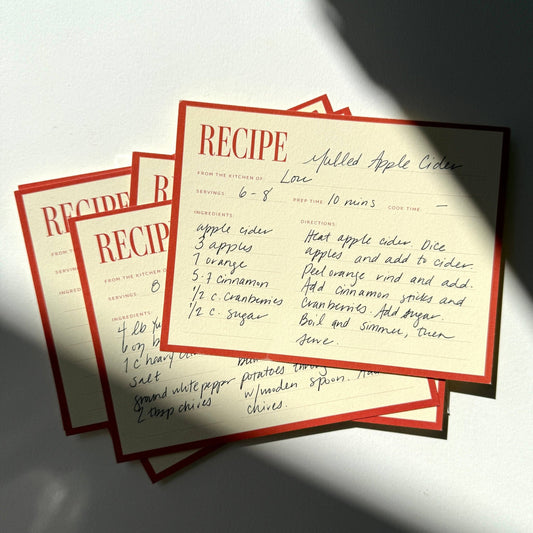 RECIPE Mulled Apple Cider
FROM THE KITCHEN OF: Lori
SERVINGS: 6 - 8 PREP TIME: 10 mins COOK TIME: –
INGREDIENTS:
apple cider
3 apples
1 orange
5-7 cinnamon
1/2 c. cranberries
1/2 c. sugar
DIRECTIONS:
Heat apple cider. Dice
apples and add to cider.
Peel orange rind and add.
Add cinnamon sticks and
cranberries. Add sugar.
Boil and simmer, then
serve.
RECIPE
FROM THE KITCHEN OF
SERVINGS: 8
INGREDIENTS:
4 lb Yu
6 oz b
1 c heavy
salt
ground white pepper
2 tbsp chives
potatoes
w/ wooden spoon.
chives.
RECI
FROM THE
SERVINGS
INGREDIENTS
RECI